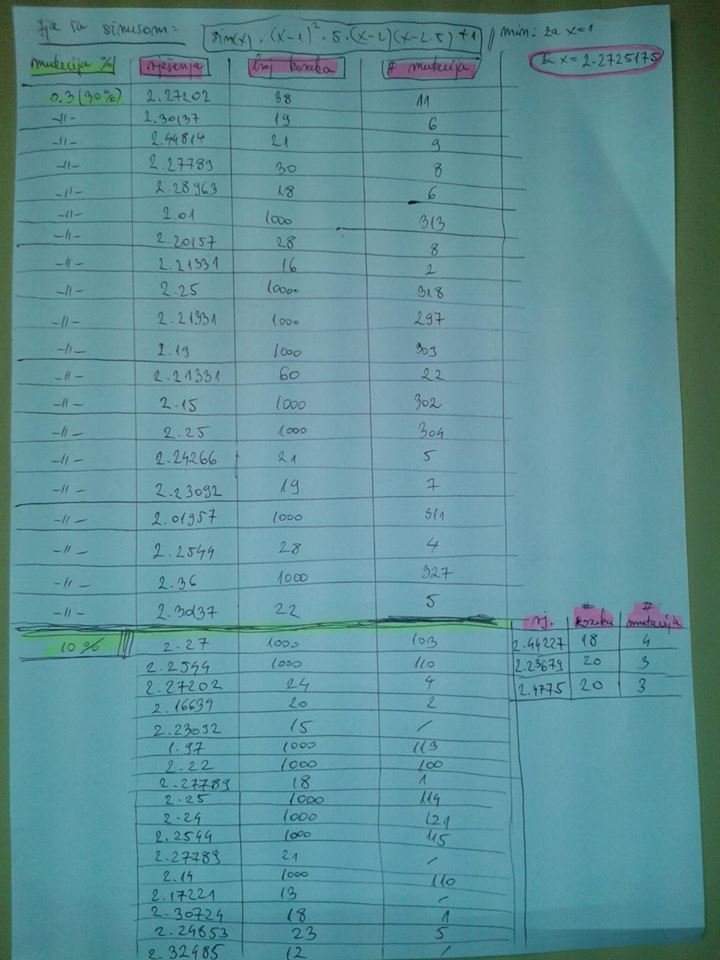 fja sa sinusom: sin(x) · (x-1)² · 5 · (x-2)(x-2.5) + 1 // min: za x=1
za x = 2.2725175
mutacija % rješenja broj koraka # mutacija
0.3 (30%) 2.27202 38 11
-||- 2.30137 19 6
-||- 2.44814 21 9
-||- 2.27789 30 8
-||- 2.28963 18 6
-||- 2.01 1000 313
-||- 2.20157 28 8
-||- 2.21331 16 2
-||- 2.25 1000 318
-||- 2.21331 1000 297
-||- 2.19 1000 303
-||- 2.21331 60 22
-||- 2.15 1000 302
-||- 2.25 1000 304
-||- 2.24266 21 5
-||- 2.23092 19 7
-||- 2.01957 1000 311
-||- 2.2544 28 4
-||- 2.36 1000 327
-||- 2.30137 22 5
10% 2.27 1000 103
2.2544 1000 110
2.27202 24 4
2.16639 20 2
2.23092 15 /
1.97 1000 113
2.22 1000 100
2.27789 18 1
2.25 1000 114
2.24 1000 121
2.2544 1000 115
2.27789 21 /
2.14 1000 110
2.17221 13 /
2.30724 18 1
2.24853 23 5
2.32485 12 /
rj. # koraka # mutacija
2.44227 18 4
2.23679 20 3
2.4775 20 3